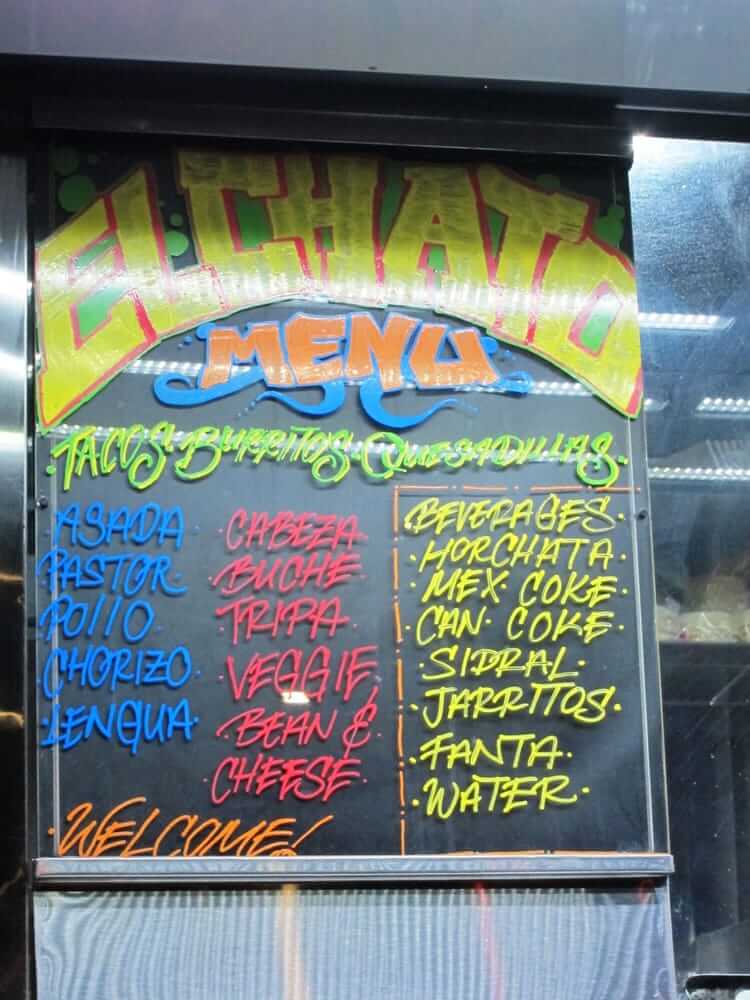 EL CHATO
MENU
·TACOS·BURRITOS·QUESADILLAS·
ASADA
PASTOR
POLLO
CHORIZO
LENGUA·
·CABEZA·
·BUCHE·
·TRIPA·
·VEGGIE·
·BEAN &
CHEESE·
·BEVERAGES·
·HORCHATA·
·MEX COKE·
·CAN· COKE·
·SIDRAL·
·JARRITOS·
·FANTA·
·WATER·
·WELCOME!